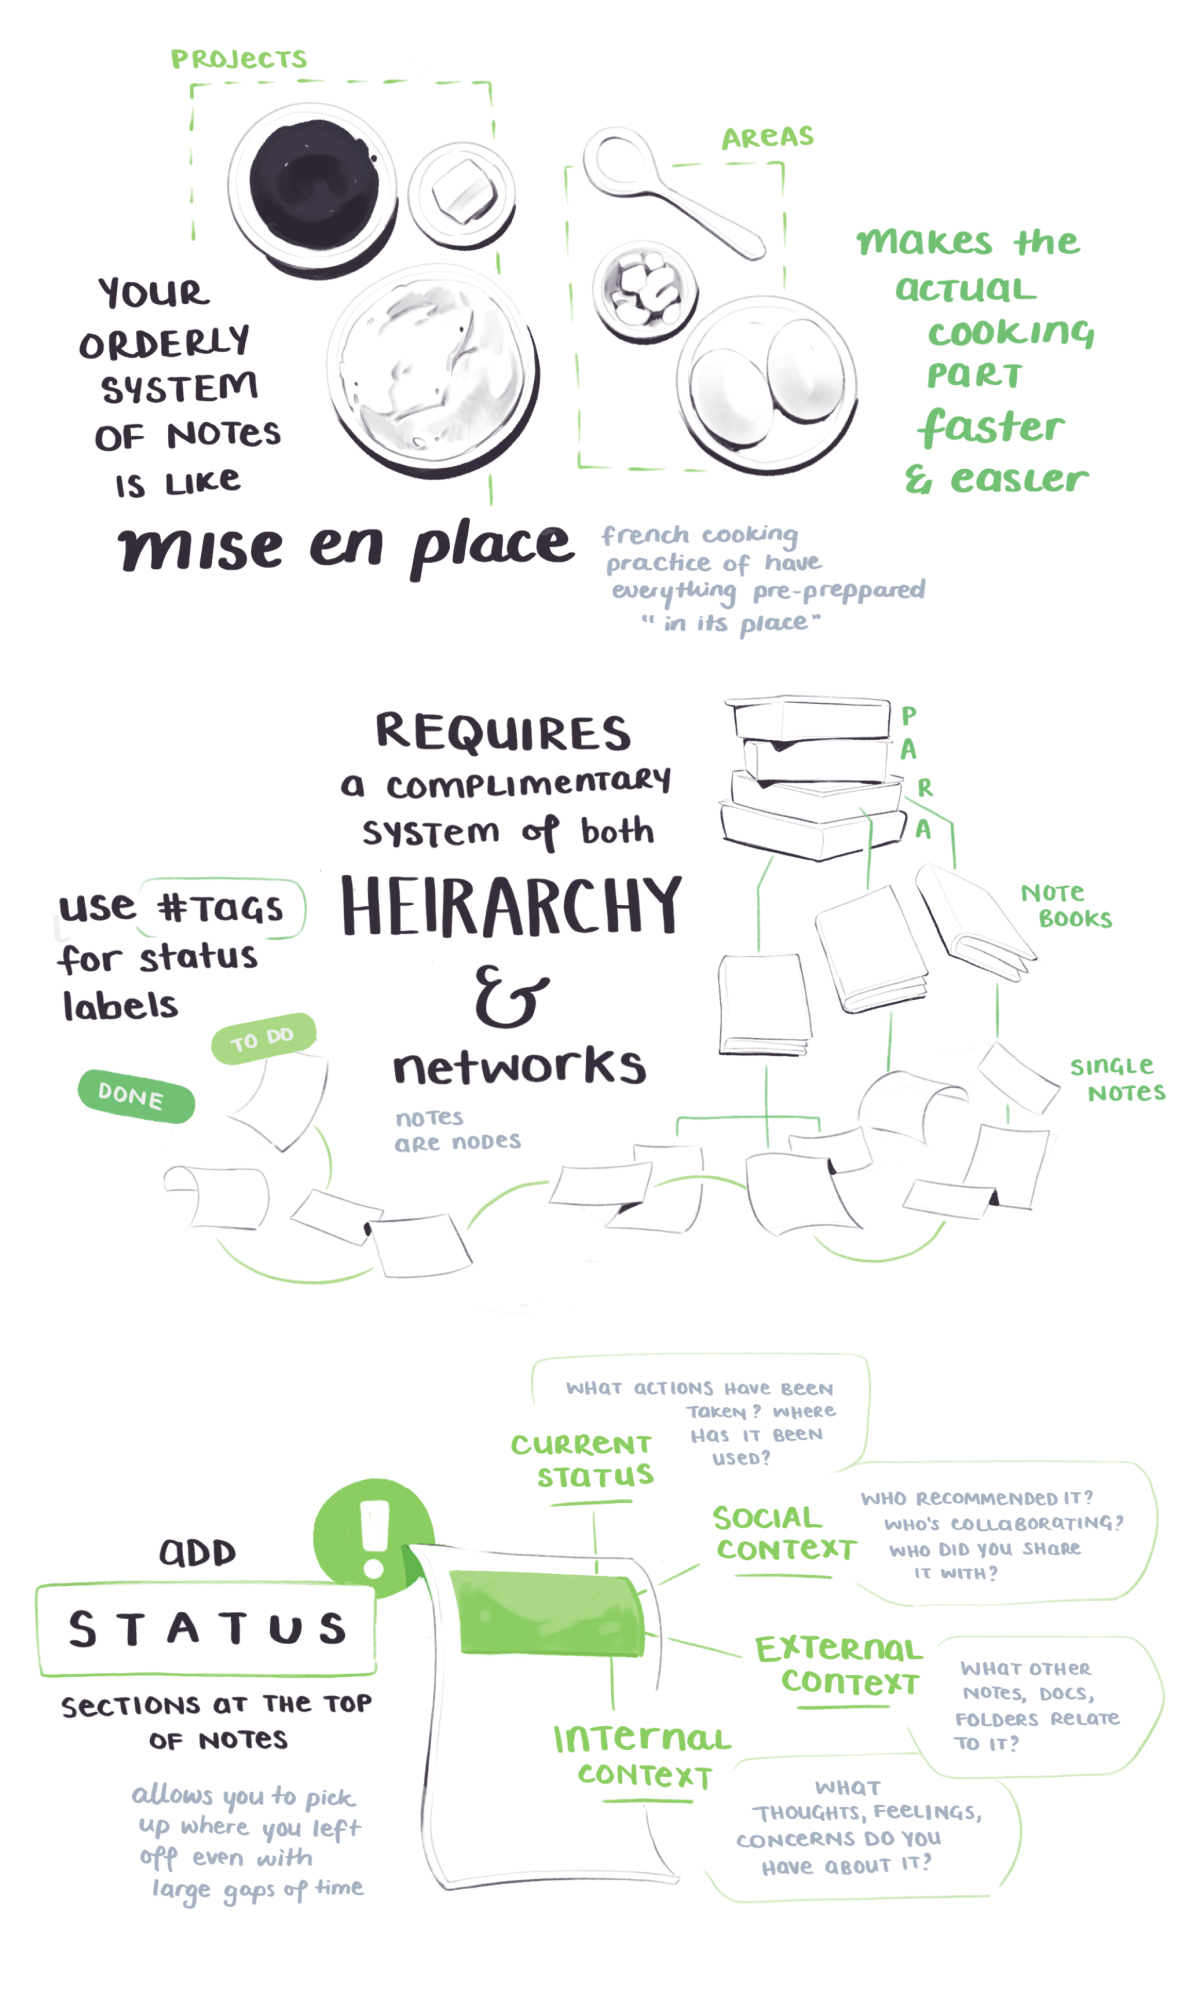 PROJECTS
AREAS
YOUR
ORDERLY
SYSTEM
OF NOTES
IS LIKE
mise en place
french cooking
practice of have
everything pre-preppared
"in its place"
makes the
ACTUAL
cooking
PART
faster
& easier
REQUIRES
a complimentary
system of both
HEIRARCHY
&
networks
NOTES
ARE NODES
P
A
R
A
NOTE
BOOKS
SINGLE
NOTES
use #TAGS
for status
labels
TO DO
DONE
ADD
STATUS
SECTIONS AT THE TOP
OF NOTES
allows you to pick
up where you left
off even with
large gaps of time
CURRENT
STATUS
WHAT ACTIONS HAVE BEEN
TAKEN? WHERE
HAS IT BEEN
USED?
SOCIAL
CONTEXT
WHO RECOMMENDED IT?
WHO'S COLLABORATING?
WHO DID YOU SHARE
IT WITH?
EXTERNAL
CONTEXT
WHAT OTHER
NOTES, DOCS,
FOLDERS RELATE
TO IT?
INTERNAL
CONTEXT
WHAT
THOUGHTS, FEELINGS,
CONCERNS DO YOU
HAVE ABOUT IT?